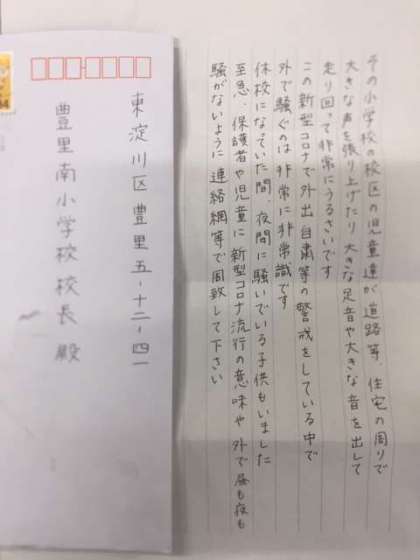 その小学校の校区の児童達が道路等、住宅の周りで
大きな声を張り上げたり大きな足音や大きな音を出して
走り回って非常にうるさいです
この新型コロナで外出自粛等の警戒をしている中で
外で騒ぐのは非常に非常識です
休校になっていた間、夜間に騒いでいる子供もいました
至急、保護者や児童に新型コロナ流行の意味や外で昼も夜も
騒がないように連絡網等で周致して下さい
東淀川区豊里五-十二-四一
豊里南小学校校長殿